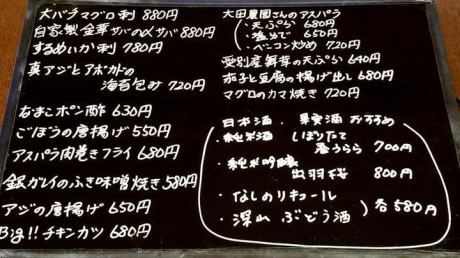 大バチマグロ刺 880円
自家製金華サバの〆サバ 880円
するめいか刺 780円
真アジとアボカドの
海苔包み 720円
白まこポン酢 630円
ごぼうの唐揚げ 550円
アスパラ肉巻きフライ 680円
銀ガレイのふき味噌焼き 580円
アジの唐揚げ 650円
Big!! チキンカツ 680円
大田農園さんのアスパラ
・天ぷら 680円
・塩ゆで 650円
・ベーコン炒め 720円
愛別産舞茸の天ぷら 640円
茄子と豆腐の揚げ出し 680円
マグロのカマ焼き 720円
日本酒、果実酒 おすすめ
・純米酒 しぼりたて
春うらら 700円
・純米吟醸
出羽桜 800円
・なしのリキュール
・深山 ぶどう酒 各580円